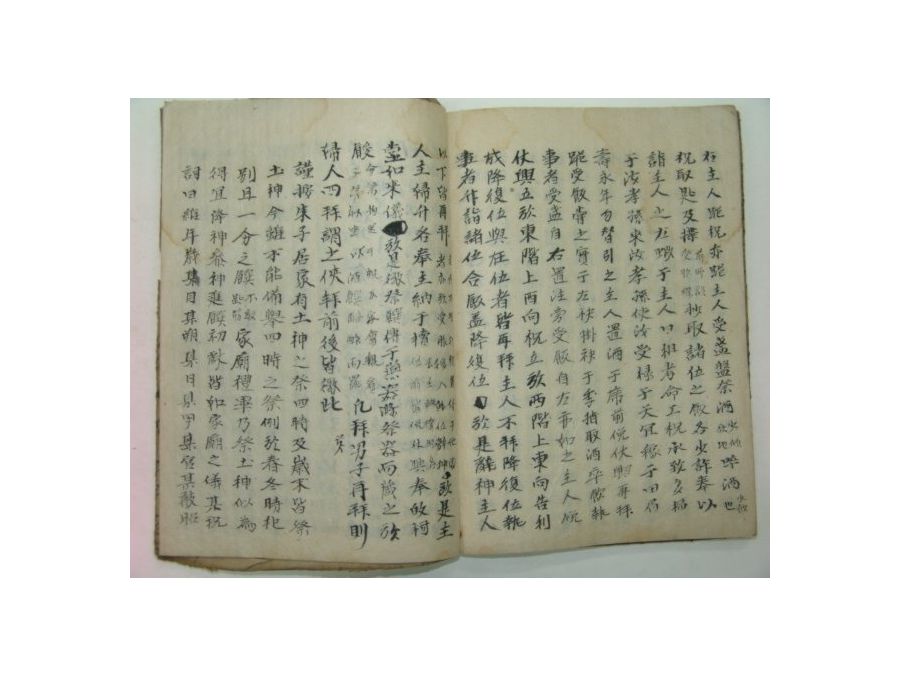 在主人跪祝亦跪主人受盞盤祭酒啐酒
祝取匙及抄取諸位之飯各少許奉以
詣主人之左嘏于主人曰祖考命工祝承致多福
于汝孝孫來汝孝孫使汝受祿于天宜稼于田眉
壽永年勿替引之主人置酒于席前俛伏興再拜
跪受飯嘗之實于左袂掛袂于季指取酒卒飲執
事者受盞自右置注旁受飯自左亦如之主人俛
伏興立於東階上西向祝立於西階上東向告利
成降復位與在位者皆再拜主人不拜降復位執
事者詣諸位合飯蓋降復位 於是辭神主人
以下皆再拜 於是主
人主婦升各奉主納于櫝 奉歸祠
堂如來儀 於是徹祭饌傳于燕器滌祭器而藏之於
餕 凡拜男子再拜則
婦人四拜謂之俠拜前後皆倣此
謹按朱子居家有土神之祭四時及歲末皆祭
土神今雖不能備擧四時之祭例於春冬時祀
別具一分之饌家廟禮畢乃祭土神似爲
得宜降神參神進饌初獻皆如家廟之儀其祝
詞曰維年歲某月某朔日某甲某官某敢昭